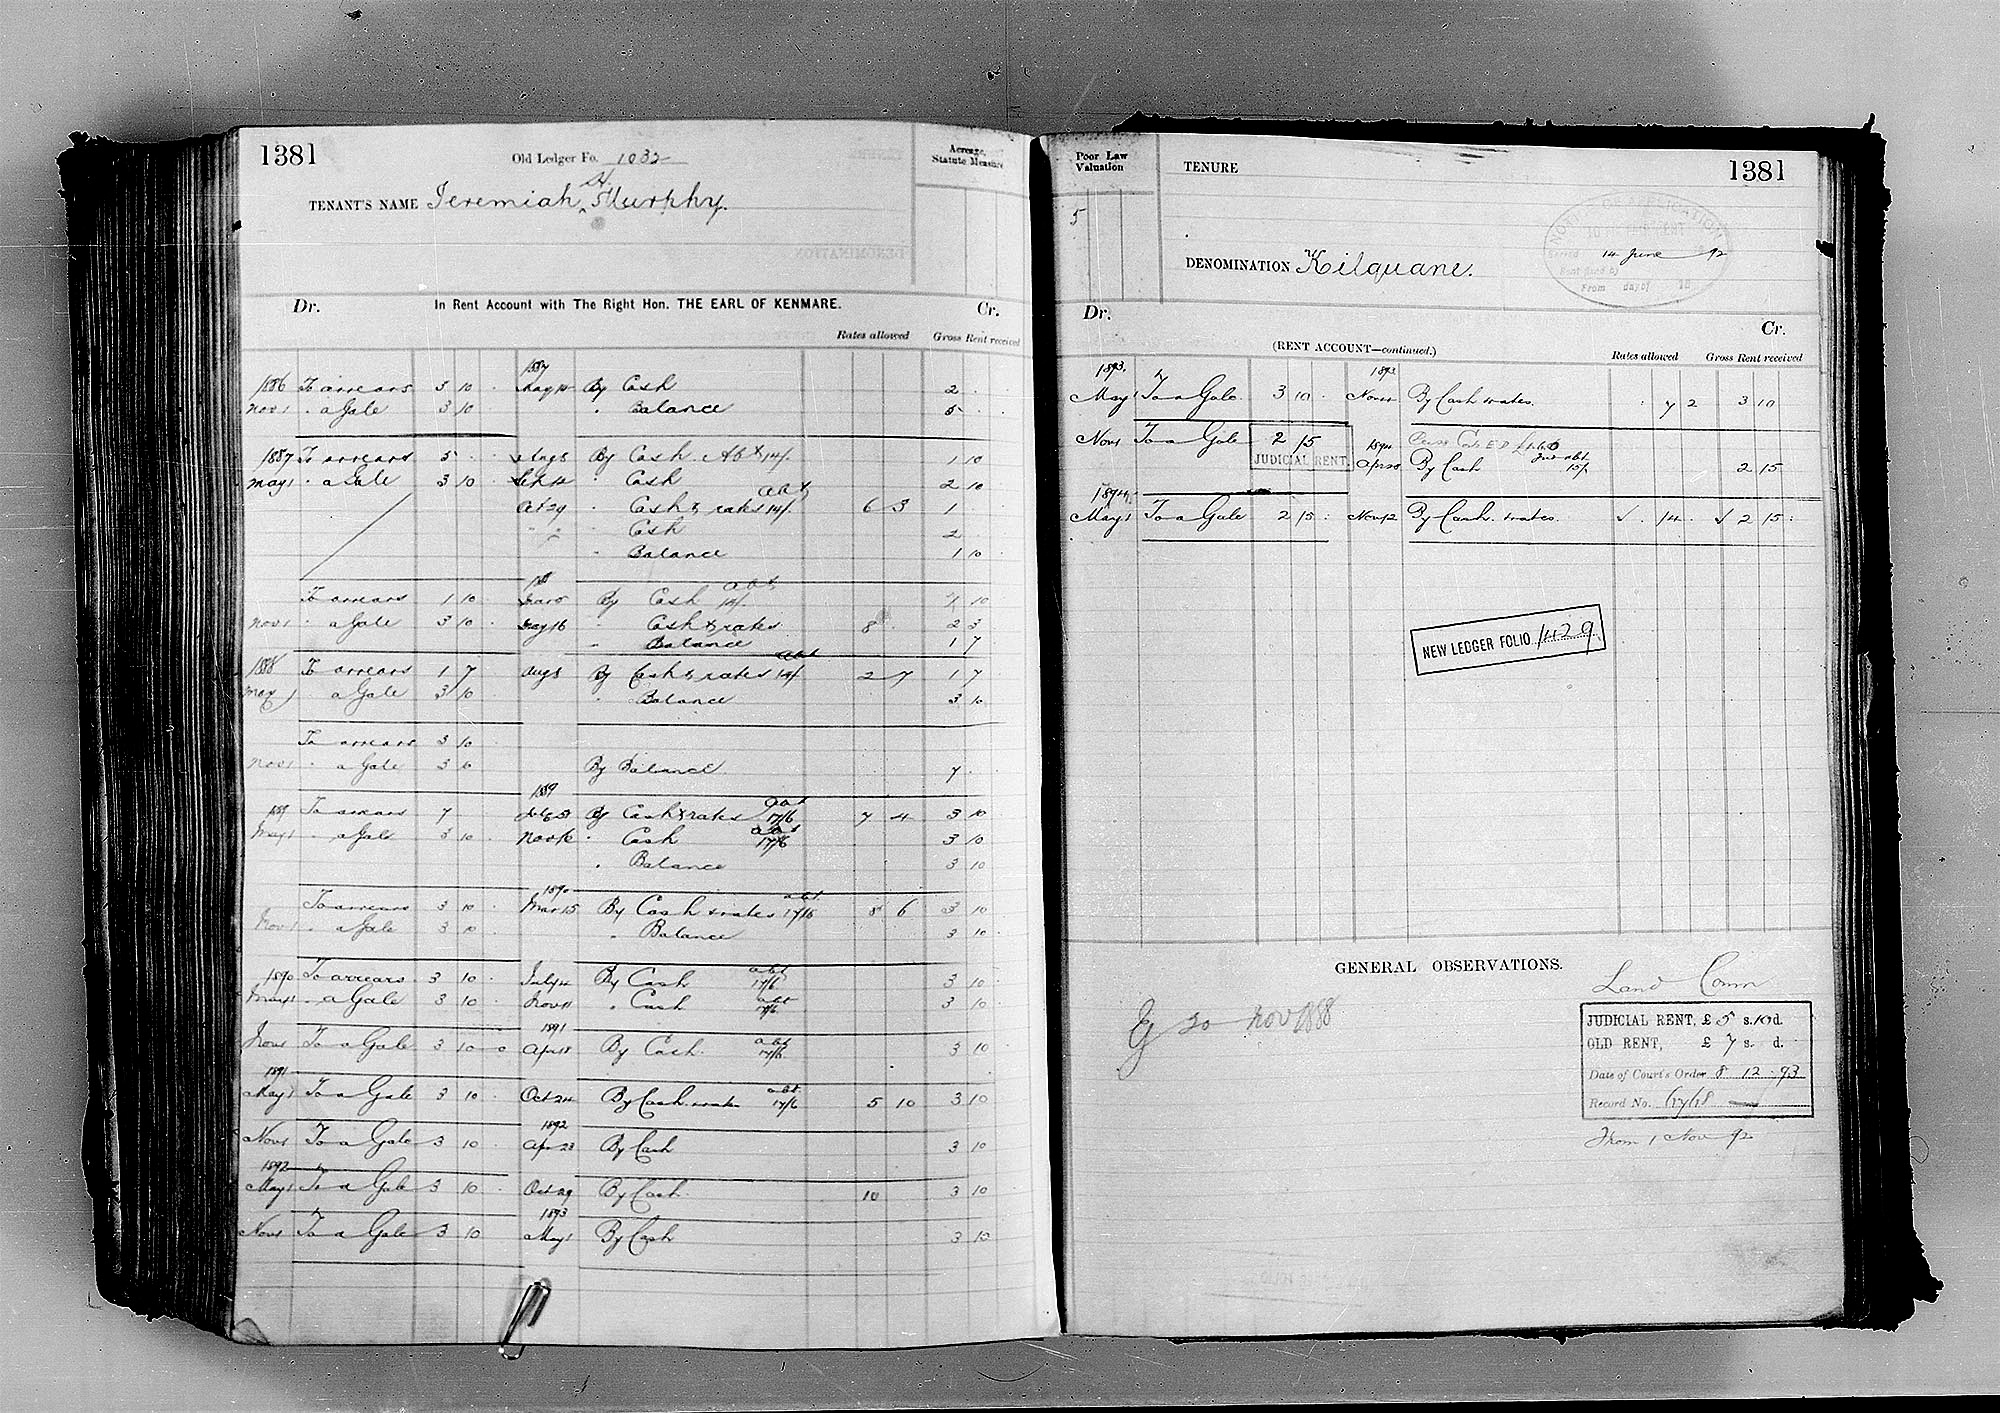 1381
Old Ledger Fo. 1032
Acreage, Statute Measure
TENANT'S NAME Jeremiah H. Murphy.
Dr. In Rent Account with The Right Hon. THE EARL OF KENMARE. Cr.
Rates allowed Gross Rent received
1887
1886 To arrears 3 10 May 14 By Cash 2
Nov 1 " a Gale 3 10 " Balance 5
1887 To arrears 5 Aug 8 By Cash Abt 14/. 1 10
May 1 " a Gale 3 10 Cash 2 10
Oct 29 " Cash & rates abt 14/. 6 3 1
" " " Cash 2
" Balance 1 10
188
To arrears 1 10 By Cash abt 14/. 1 10
Nov 1 " a Gale 3 10 May 16 " Cash & rates 8 2 3
" Balance 1 7
1888 To arrears 1 7 Aug 8 By Cash & rates abt 14/. 2 7 1 7
May 1 " a Gale 3 10 " Balance 3 10
To arrears 3 10
Nov 1 " a Gale 3 10 By Balance 7
1889
1889 To arrears 7 By Cash & rates abt 17/6 7 4 3 10
May 1 " a Gale 3 10 Nov 16 " Cash abt 17/6 3 10
" Balance 3 10
1890
To arrears 3 10 Mar 15 By Cash & rates abt 17/6 8 6 3 10
Nov 1 " a Gale 3 10 " Balance 3 10
1890 To arrears 3 10 July 14 By Cash abt 17/6 3 10
May 1 " a Gale 3 10 Nov 11 " Cash abt 17/6 3 10
1891
Nov 1 To a Gale 3 10 0 Apr 18 By Cash. abt 17/6 3 10
1891
May 1 To a Gale 3 10 Oct 24 By Cash & rates abt 17/6 5 10 3 10
1892
Nov 1 To a Gale 3 10 Apr 23 By Cash 3 10
1892
May 1 To a Gale 3 10 Oct 29 By Cash. 10 3 10
1893
Nov 1 To a Gale 3 10 May 1 By Cash 3 10
Poor Law Valuation
TENURE
1381
5
NOTICE OF APPLICATION
TO FIX FAIR RENT
Served 14 June 92
Rent fixed by
From day of 18
DENOMINATION Kilquane.
Dr. Cr.
(RENT ACCOUNT—continued.)
Rates allowed Gross Rent received
1893. 1893
May 1 To a Gale. 3 10 Nov By Cash & rates. 7 2 3 10
Nov 1 To a Gale 2 15 1894
JUDICIAL RENT. Apr 28 By Cash 15/. 2 15
1894
May 1 To a Gale 2 15 Nov 12 By Cash & rates. 14 2 15
NEW LEDGER FOLIO 1429
GENERAL OBSERVATIONS.
Land Comn
Ej Nov 1888
JUDICIAL RENT, £ 5 s. 10 d.
OLD RENT, £ 7 s. d.
Date of Court's Order 8 12 93
Record No. 17618
From 1 Nov 92